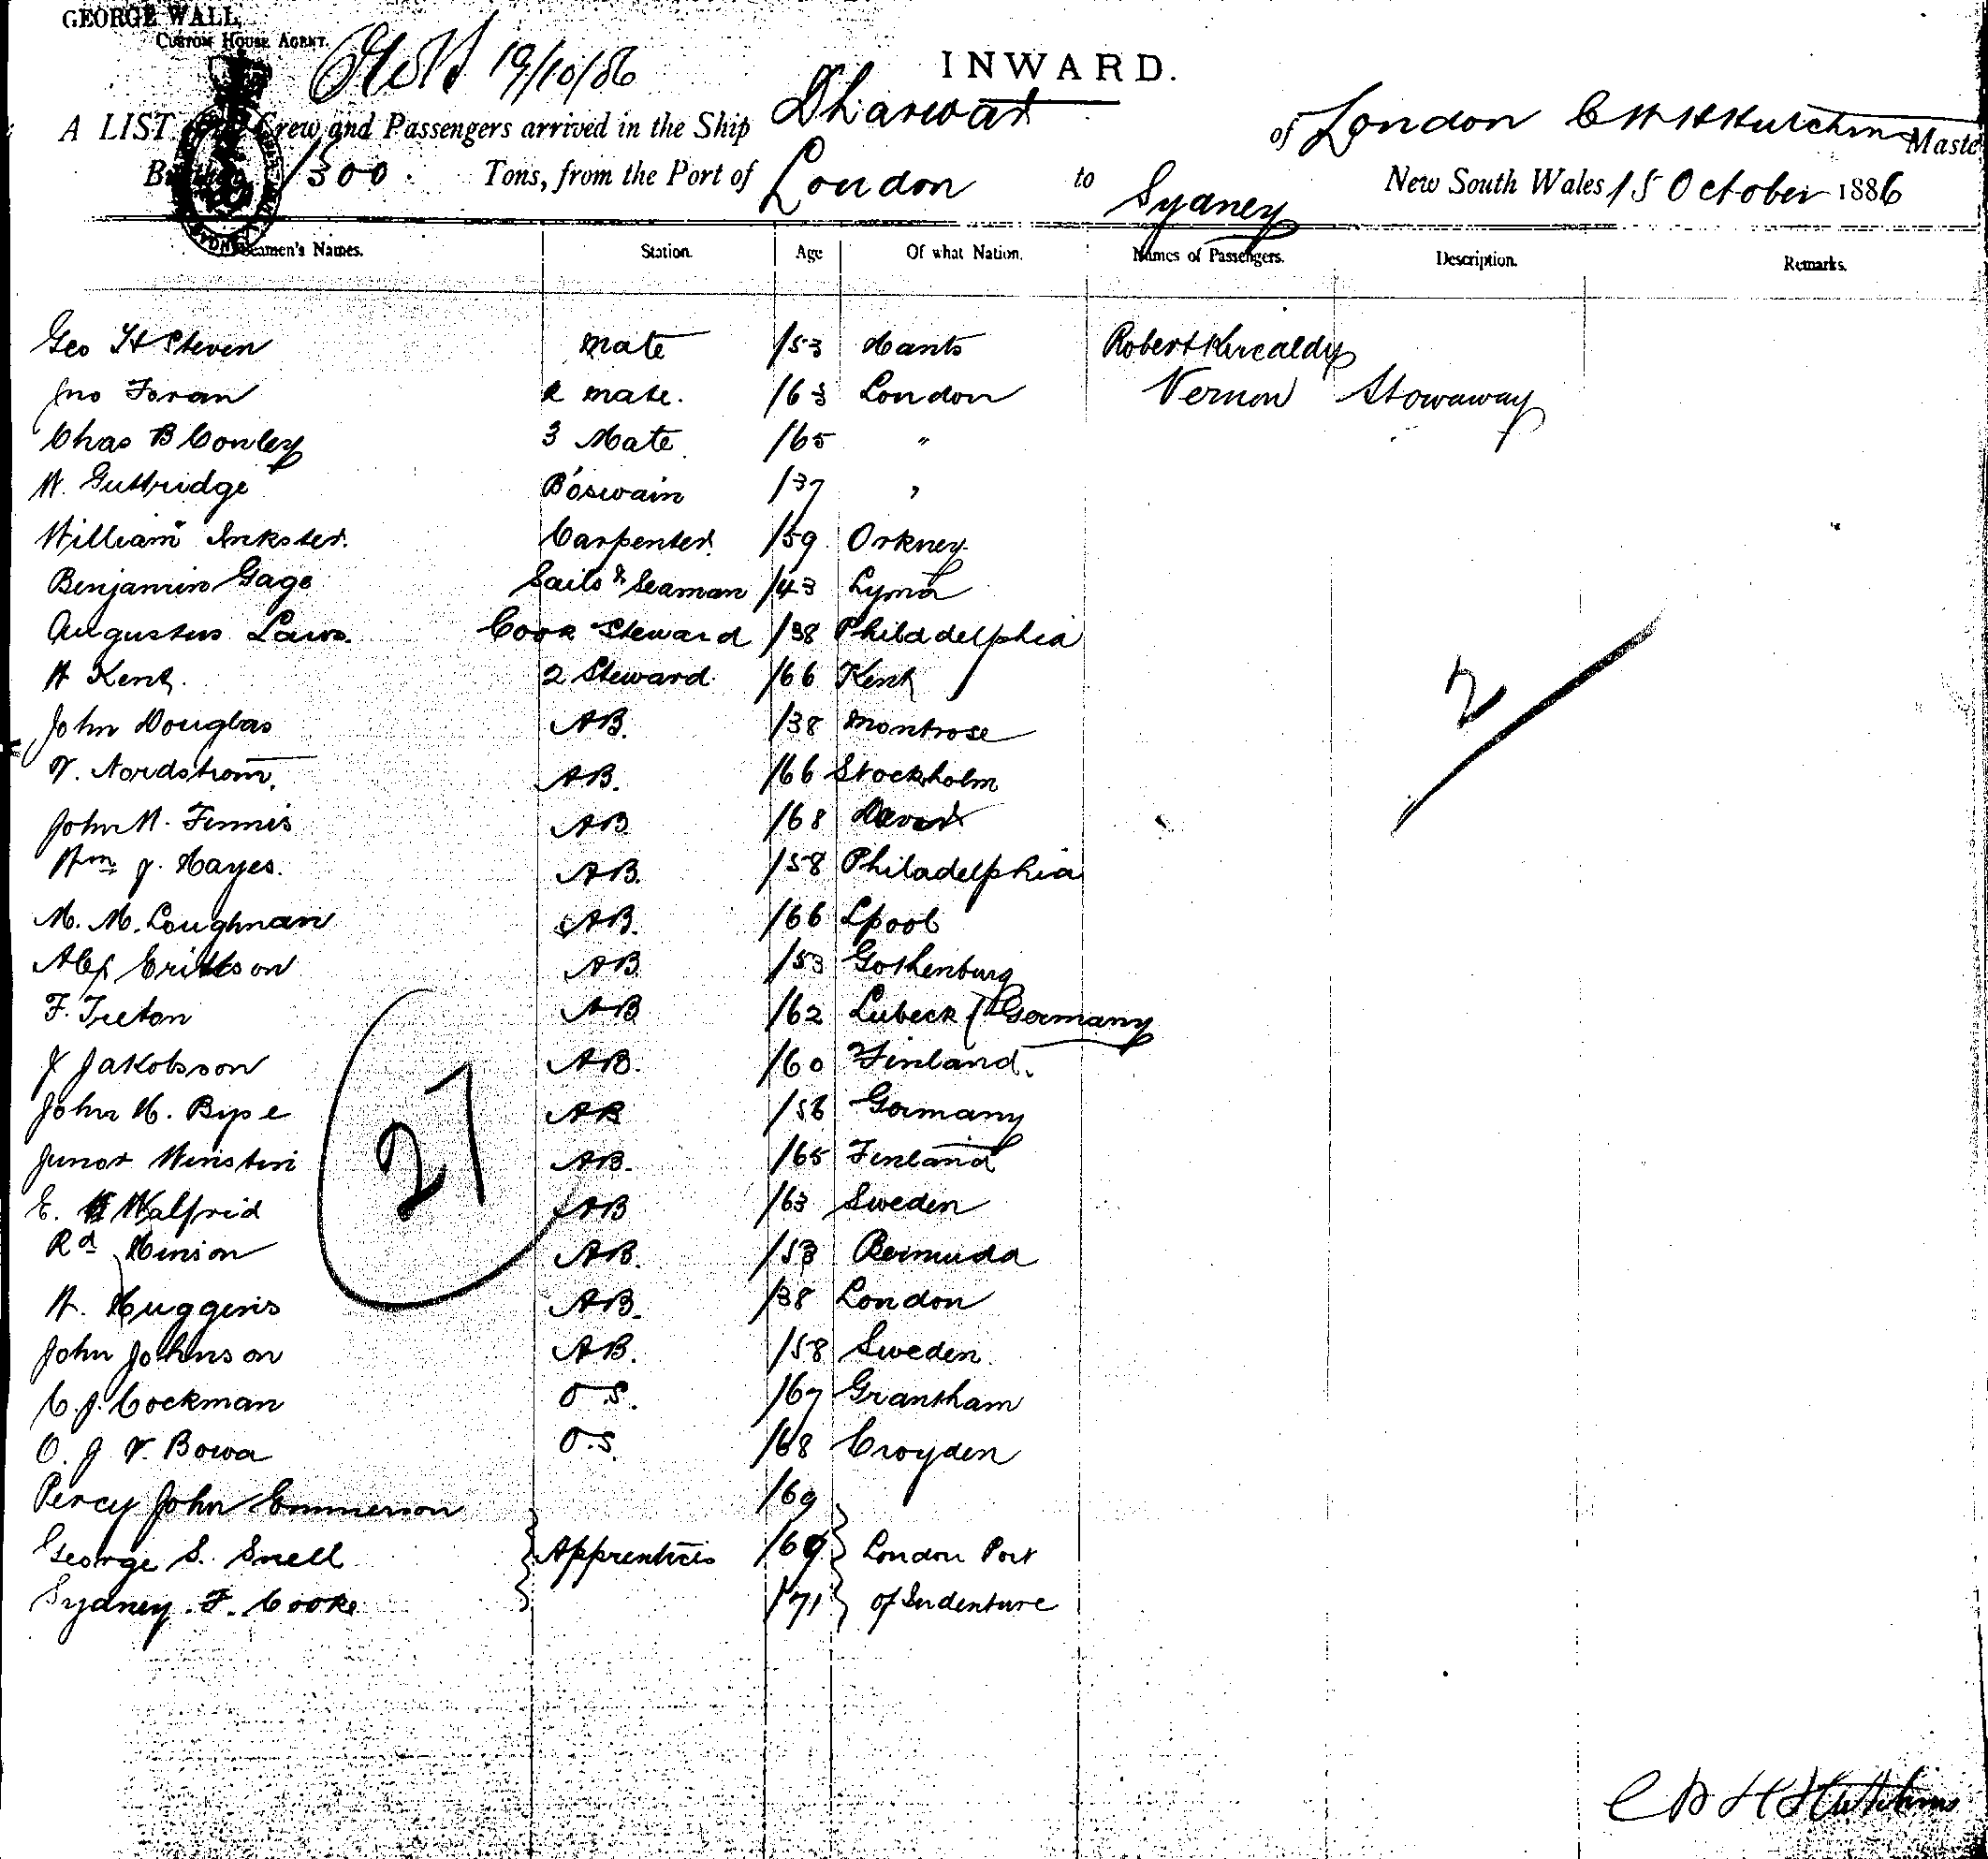 GEORGE WALL,
CUSTOM HOUSE AGENT.
19/10/86
INWARD.
A LIST Crew and Passengers arrived in the Ship Dharwar of London C W H Hutchins Master
1300. Tons, from the Port of London to Sydney New South Wales 15 October 1886
Seamen's Names. Station. Age Of what Nation. Names of Passengers. Description. Remarks.
Geo H Steven Mate /53 Hants Robert Kircaldy
Jno Foran 2 mate. /63 London Vernon Stowaway
Chas B Conley 3 Mate /65 "
W. Guttridge Boswain /37 "
William Inkster. Carpenter. /59 Orkney
Benjamin Gage Sails & Seaman /43
Augustus Laws. Cook Steward /38 Philadelphia
H Kent. 2 Steward /66 Kent
John Douglas AB. /38 Montrose
V. Nordstrom. AB. /66 Stockholm
John W. Finnis AB /68
Wm J. Hayes. AB. /58 Philadelphia
M. M. Loughnan AB. /66 Lpool
Alex Erikson AB /53 Gothenburg
F. Treton AB /62 Lubeck Germany
J Jakobsson AB. /60 Finland.
John H. Bype AB /56 Germany
Junor Winsten AB. /65 Finland
E. Walfrid AB /63 Sweden
Rd Hinson AB. /53 Bermuda
H. Huggins AB. /38 London
John Johnson AB. /58 Sweden
C. J. Cockman O.S. /67 Grantham
O. J. V. Bowa O.S. /68 Croyden
Percy John Emmerson /69
George S. Snell Apprentices /69 London Port
Sydney. F. Cooke /71 of Indenture
27
2
C W H Hutchins